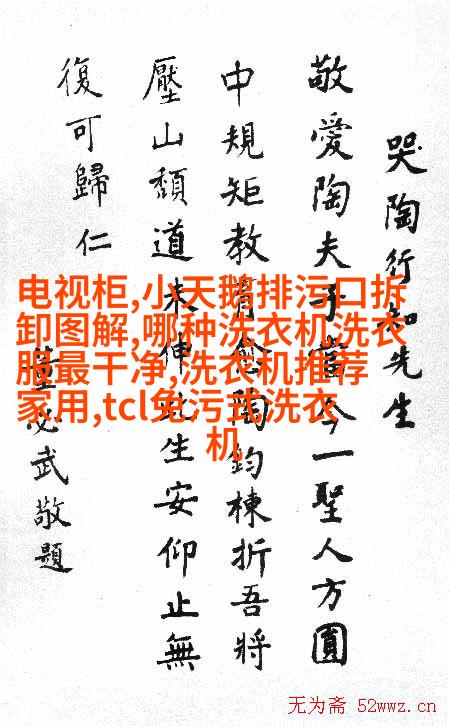 哭陶行知先生
敬愛陶夫子當今一聖人方圓
中規矩教育愈陶鈞棟折吾將
壓山頽道未伸此生安仰止無
復可歸仁
董必武敬題
电视柜,小天鹅排污口拆
卸图解,哪种洗衣机洗衣
服最干净,洗衣机推荐
家用,tcl免污式洗衣
机
无为斋 52wwz.cn